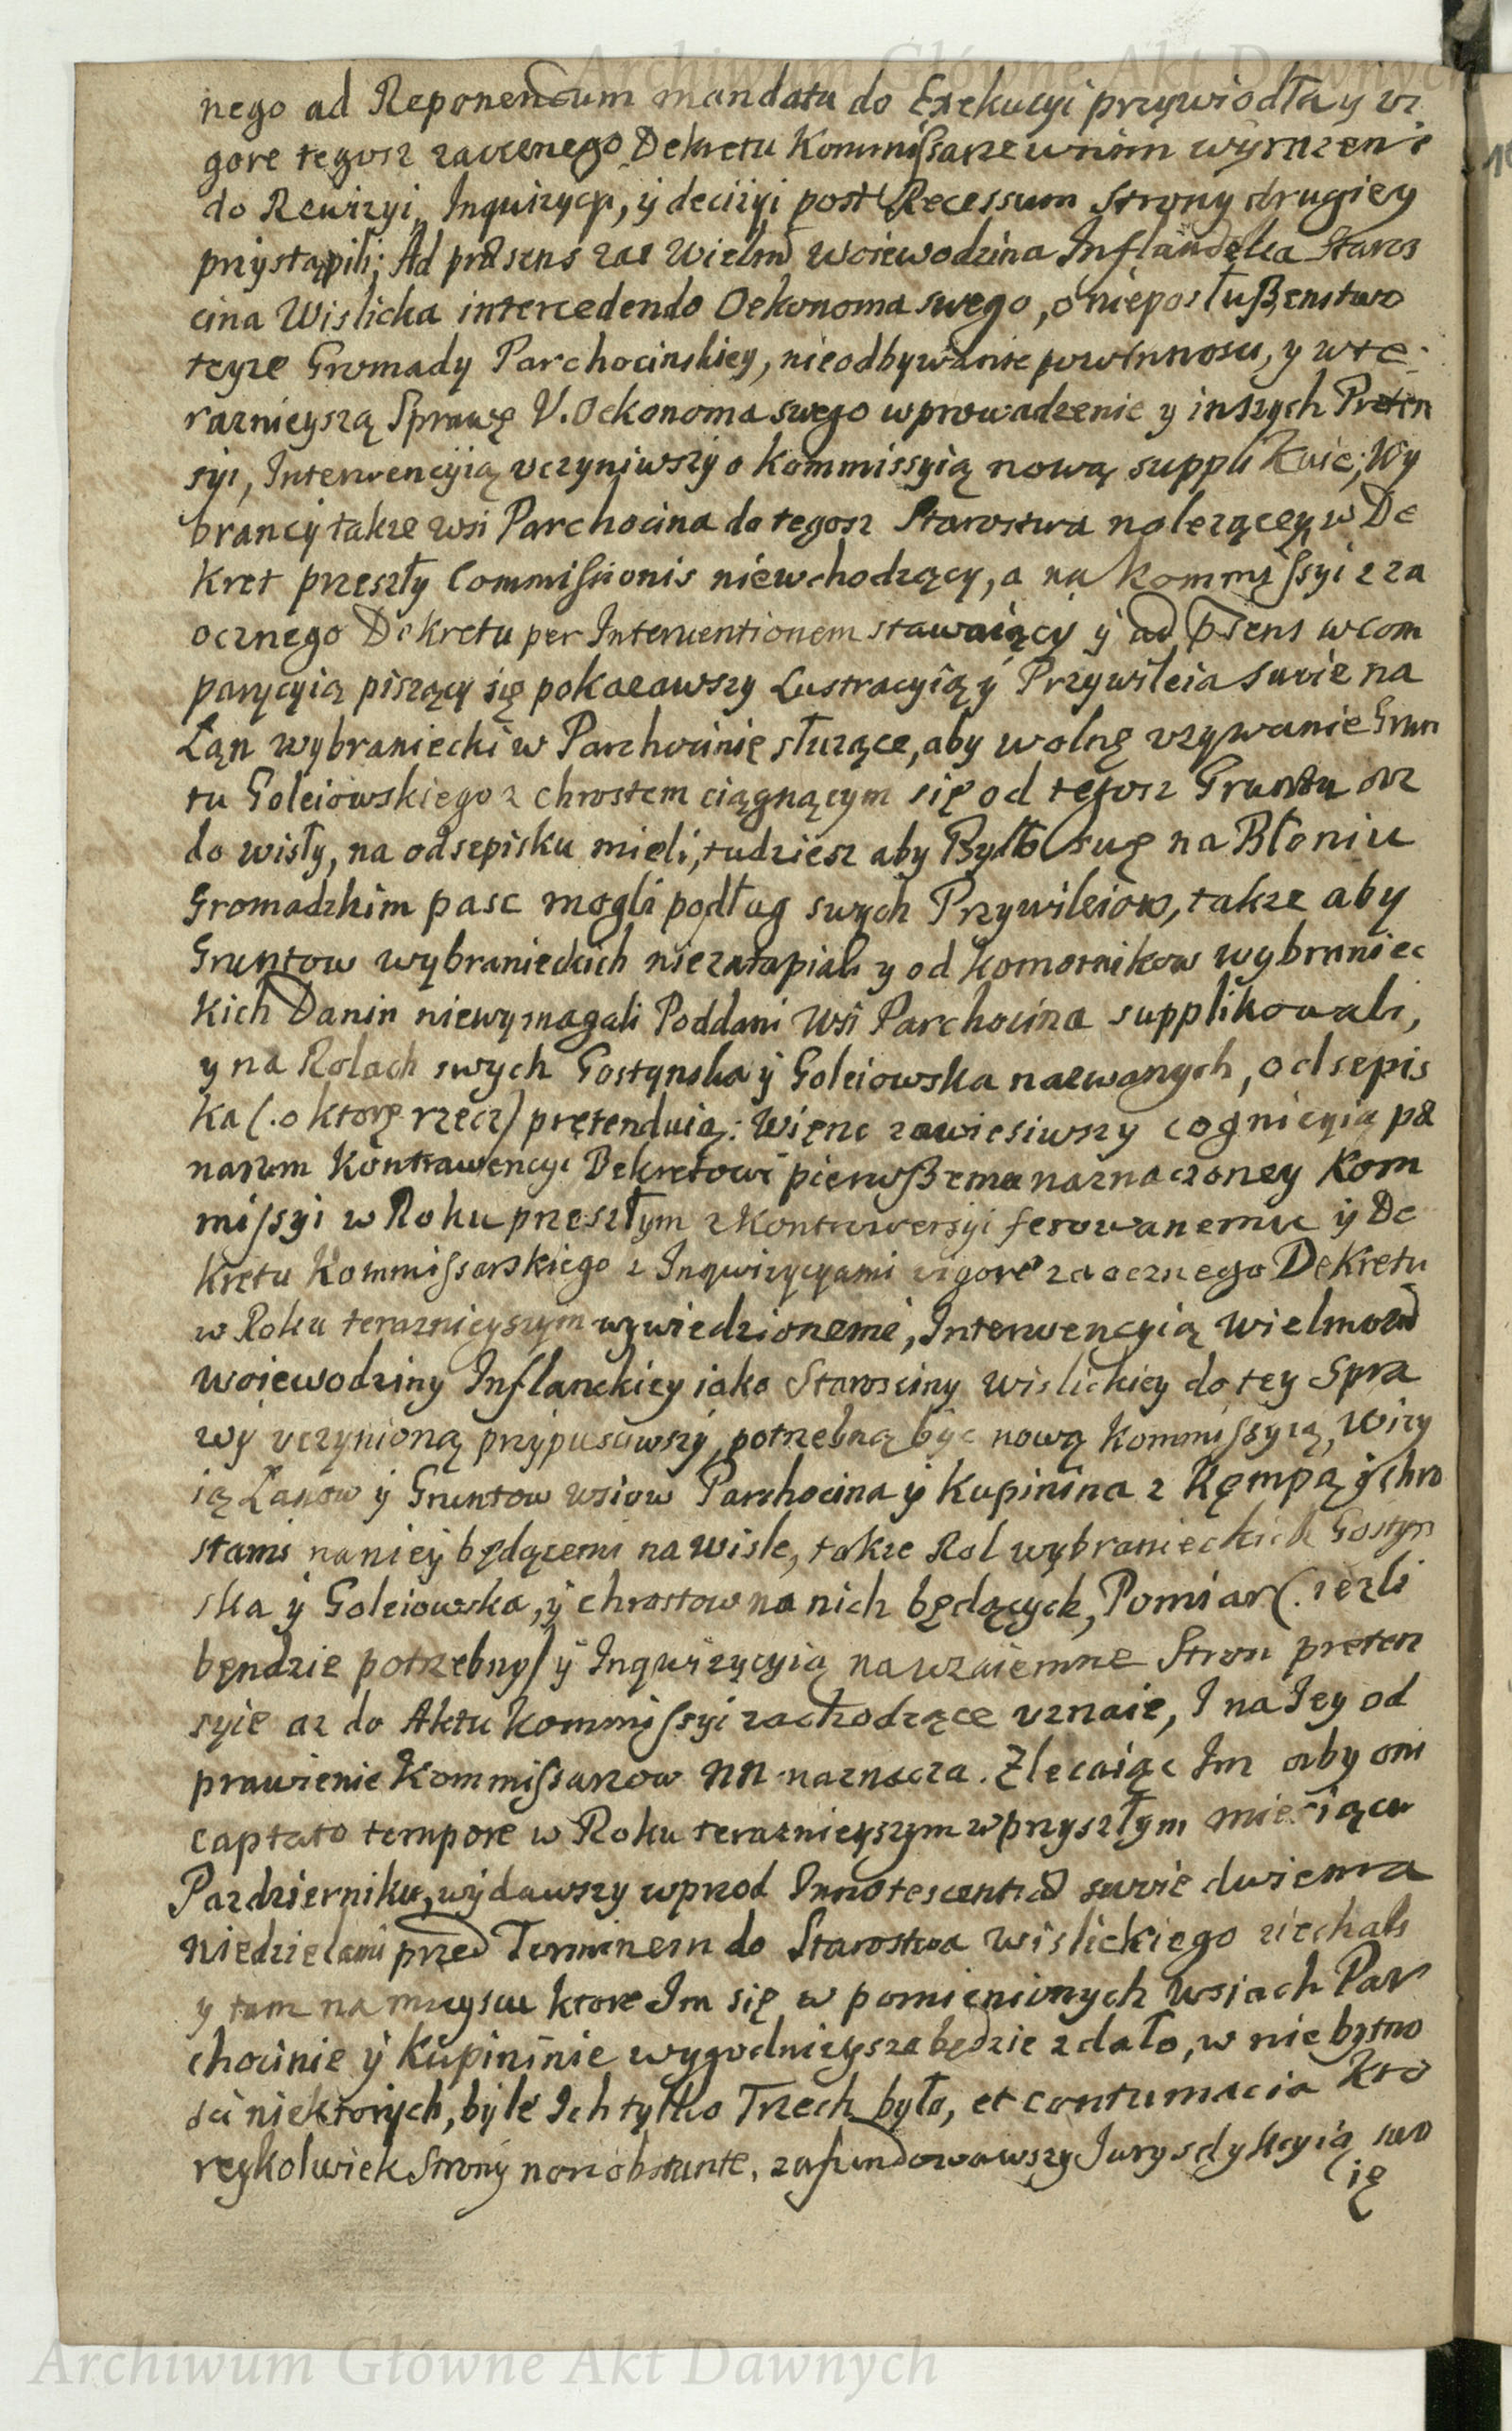 Archiwum Główne Akt Dawnych
nego ad Reponendum mandatu do Exekucyi przywiodła y vi
gore tegosz zaocznego Dekretu Kommissarze w nim wyrazeni
do Rewizyi, Inquizycyi, ÿ decizyi post Recessum Strony drugiey
przystąpili; Ad præsens zas Wielmo Woiewodzina Inflandska Staros
cina Wislicka intercedendo Oekonoma swego, o nieposłuszenstwo
teyze Gromady Parchocinskiey, nieodbywanie powinnosci, y w te
raznieyszą Sprawę V. Oekonoma swego wprowadzenie y inszych Preten
syi, Interwencyią vczyniwszy o Kommissyią nową supplikuie; Wy
brancy takze wsi Parchocina do tegosz Starostwa nalezącey, w De
kret przeszły Commissionis niewchodzący, a na Kommissyi z za
ocznego Dekretu per Interventionem stawaiący ÿ ad psens w com
parycyią piszący się pokazawszy Lustracyią ÿ Przywileia swoie na
Łan wybraniecki w Parchocinie słuzące, aby wolne vzywanie Grun
tu Goleiowskiego z chrostem ciągnącym się od tegosz Gruntu az
do wisły, na odsepisku mieli, tudziesz aby Bydło swe na Błoniu
Gromadzkim pasc mogli podług swych Przywileiow, takze aby
Gruntow wybranieckich niezatapiali y od Komornikow wybraniec
kich Danin niewymagali Poddani Wsi Parchocina supplikowali,
y na Rolach swych Gostynska ÿ Goleiowska nazwanych, odsepis
ka (. o ktore rzecz) pretenduią: Więnc zawiesiwszy cognicyią pæ
narum Kontrawencyi Dekretowi pierwszemu naznaczoney Kom
missyi w Roku przeszłym z Kontrowersyi ferowanemu ÿ De
kretu Kommissarskiego z Inqwizycyami vigore zaocznego Dekretu
w Roku teraznieyszym wywiedzionemi, Interwencyią Wielmozn
Woiewodziny Inflanckiey iako Starosciny Wislickiey do tey Spra
wy vczynioną przypusciwszy, potrzebną byc nową Kommissyią, Wizy
ią Łanow ÿ Gruntow wsiow Parchocina ÿ Kupinina z Kępą ÿ chro
stami na nieÿ będącemi na wisle, takze Rol wybranieckich Gostyn
ska ÿ Goleiowska, ÿ chrostow na nich będących, Pomiar (. iezli
będnzie potrzebny) ÿ Inqwizycyią na wzaiemne Stron preten
syie az do Aktu Kommissyi zachodzące vznaie, I na Iey od
prawienie Kommissarzow NN naznacza. Zlecaiąc Im aby oni
captato tempore w Roku teraznieyszym w przyszłym miesiącu
Pazdzierniku, wÿdawszy wprzod Innotescentia swoie dwiema
niedzielami przed Terminem do Starostwa Wislickiego ziechali
y tam na mieyscu ktore Im się w pomienionych Wsiach Par
chocinie ÿ Kupininie wygodnieysze będzie zdało, w niebytno
sci niektorych, byle Ich tylko Trzech było, et contumacia kto
reykolwiek Strony non obstante, zafundowawszy Jurysdykcyią swo
ię
Archiwum Główne Akt Dawnych